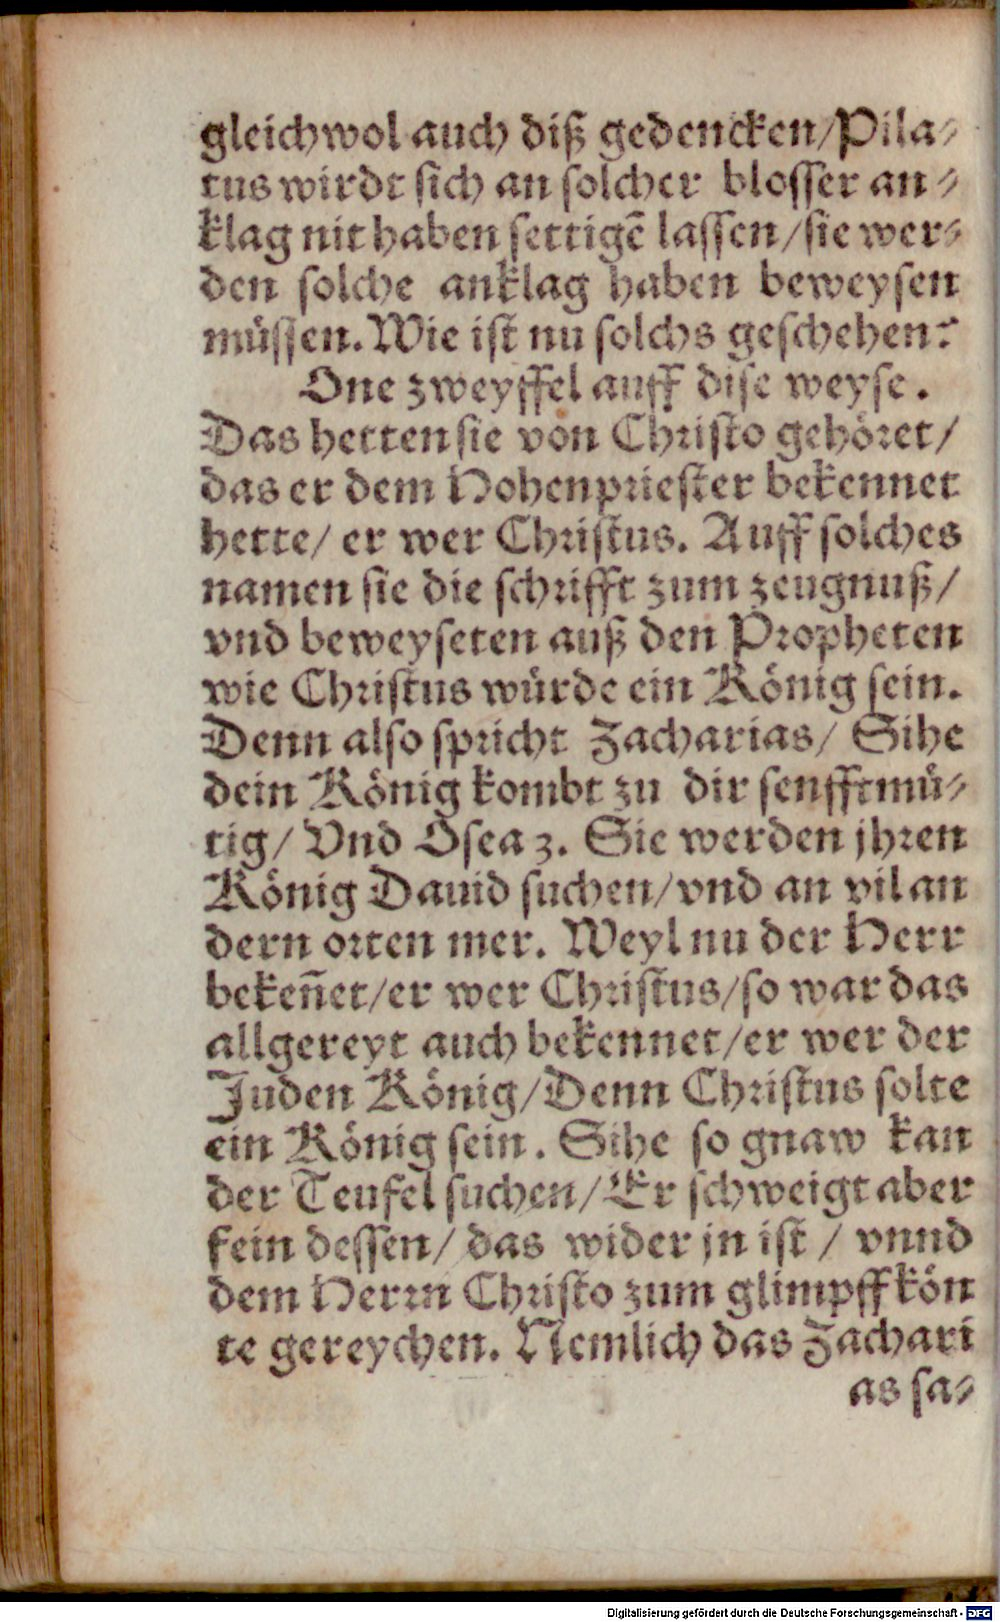 gleichwol auch diß gedencken/Pila⸗
tus wirdt sich an solcher blosser an⸗
klag nit haben settigē lassen/sie wer⸗
den solche anklag haben beweysen
müssen. Wie ist nu solchs geschehen?
One zweyffel auff dise weyse.
Das hetten sie von Christo gehöret/
das er dem Hohenpriester bekennet
hette/ er wer Christus. Auff solches
namen sie die schrifft zum zeugnuß/
vnd beweyseten auß den Propheten
wie Christus würde ein König sein.
Denn also spricht Zacharias/ Sihe
dein König kombt zu dir senfftmü⸗
tig/ Vnd Osea 3. Sie werden jhren
König Dauid suchen/vnd an vil an
dern orten mer. Weyl nu der Herr
bekeñet/er wer Christus/so war das
allgereyt auch bekennet/er wer der
Juden König/Denn Christus solte
ein König sein. Sihe so gnaw kan
der Teufel suchen/Er schweigt aber
fein dessen/ das wider jn ist / vnnd
dem Herrn Christo zum glimpff kön
te gereychen. Nemlich das Zachari
as sa⸗
Digitalisierung gefördert durch die Deutsche Forschungsgemeinschaft - DFG